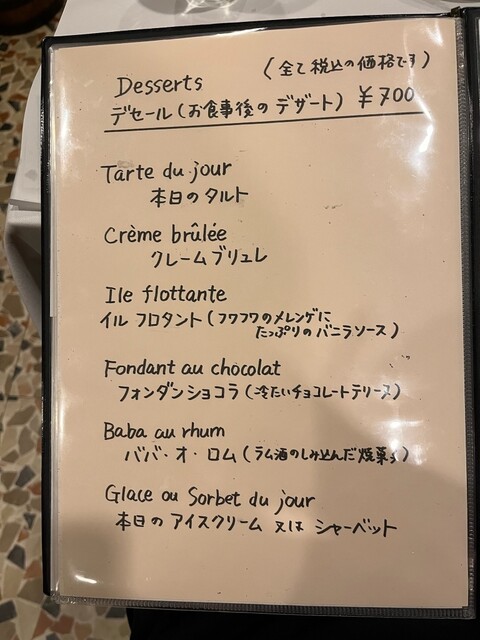 (全て税込の価格です)
Desserts
デセール(お食事後のデザート) ¥700
Tarte du jour
本日のタルト
Crème brûlée
クレームブリュレ
Ile flottante
イル フロタント(フワフワのメレンゲに
たっぷりのバニラソース)
Fondant au chocolat
フォンダンショコラ(冷たいチョコレートテリーヌ)
Baba au rhum
ババ・オ・ロム(ラム酒のしみ込んだ焼菓子)
Glace ou Sorbet du jour
本日の アイスクリーム 又は シャーベット